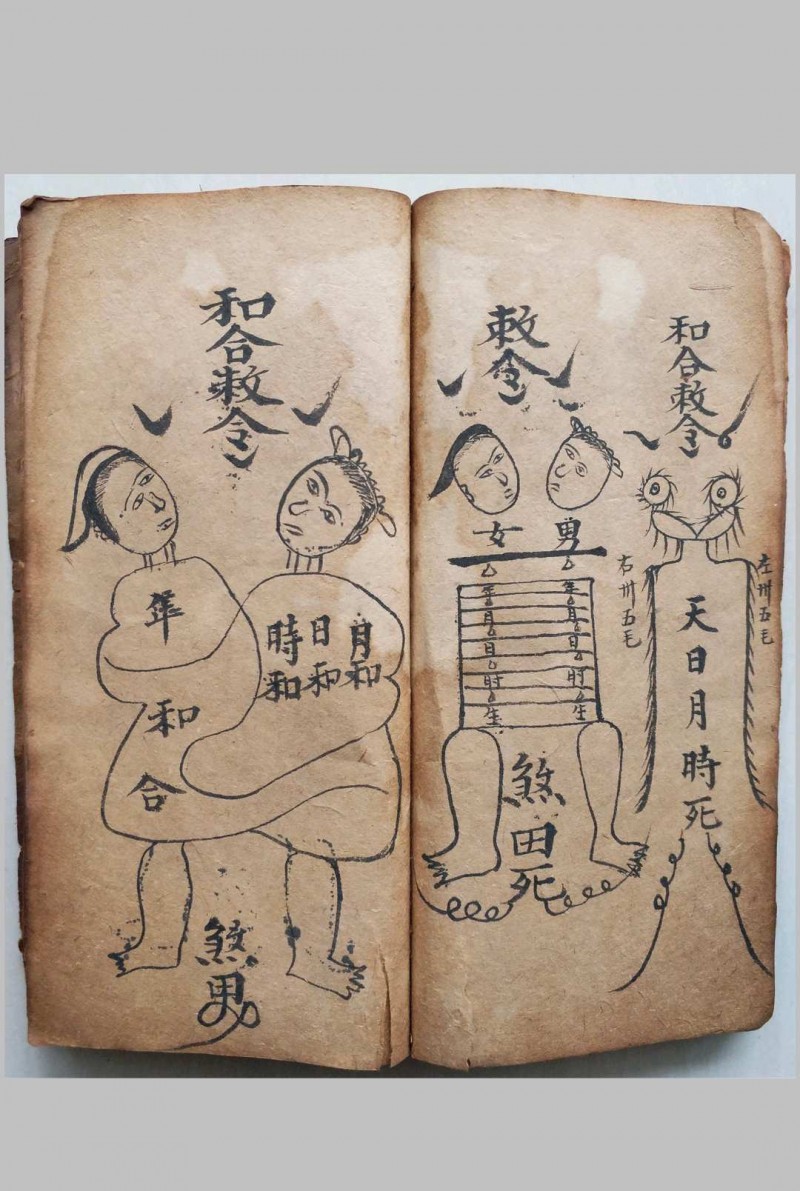 和合敕令
左卅五毛
天日月時死
右卅五毛
敕令
男
年月日时生
女
年月日时生
煞田死
和合敕令
月和
日和
時和
年和合
煞男